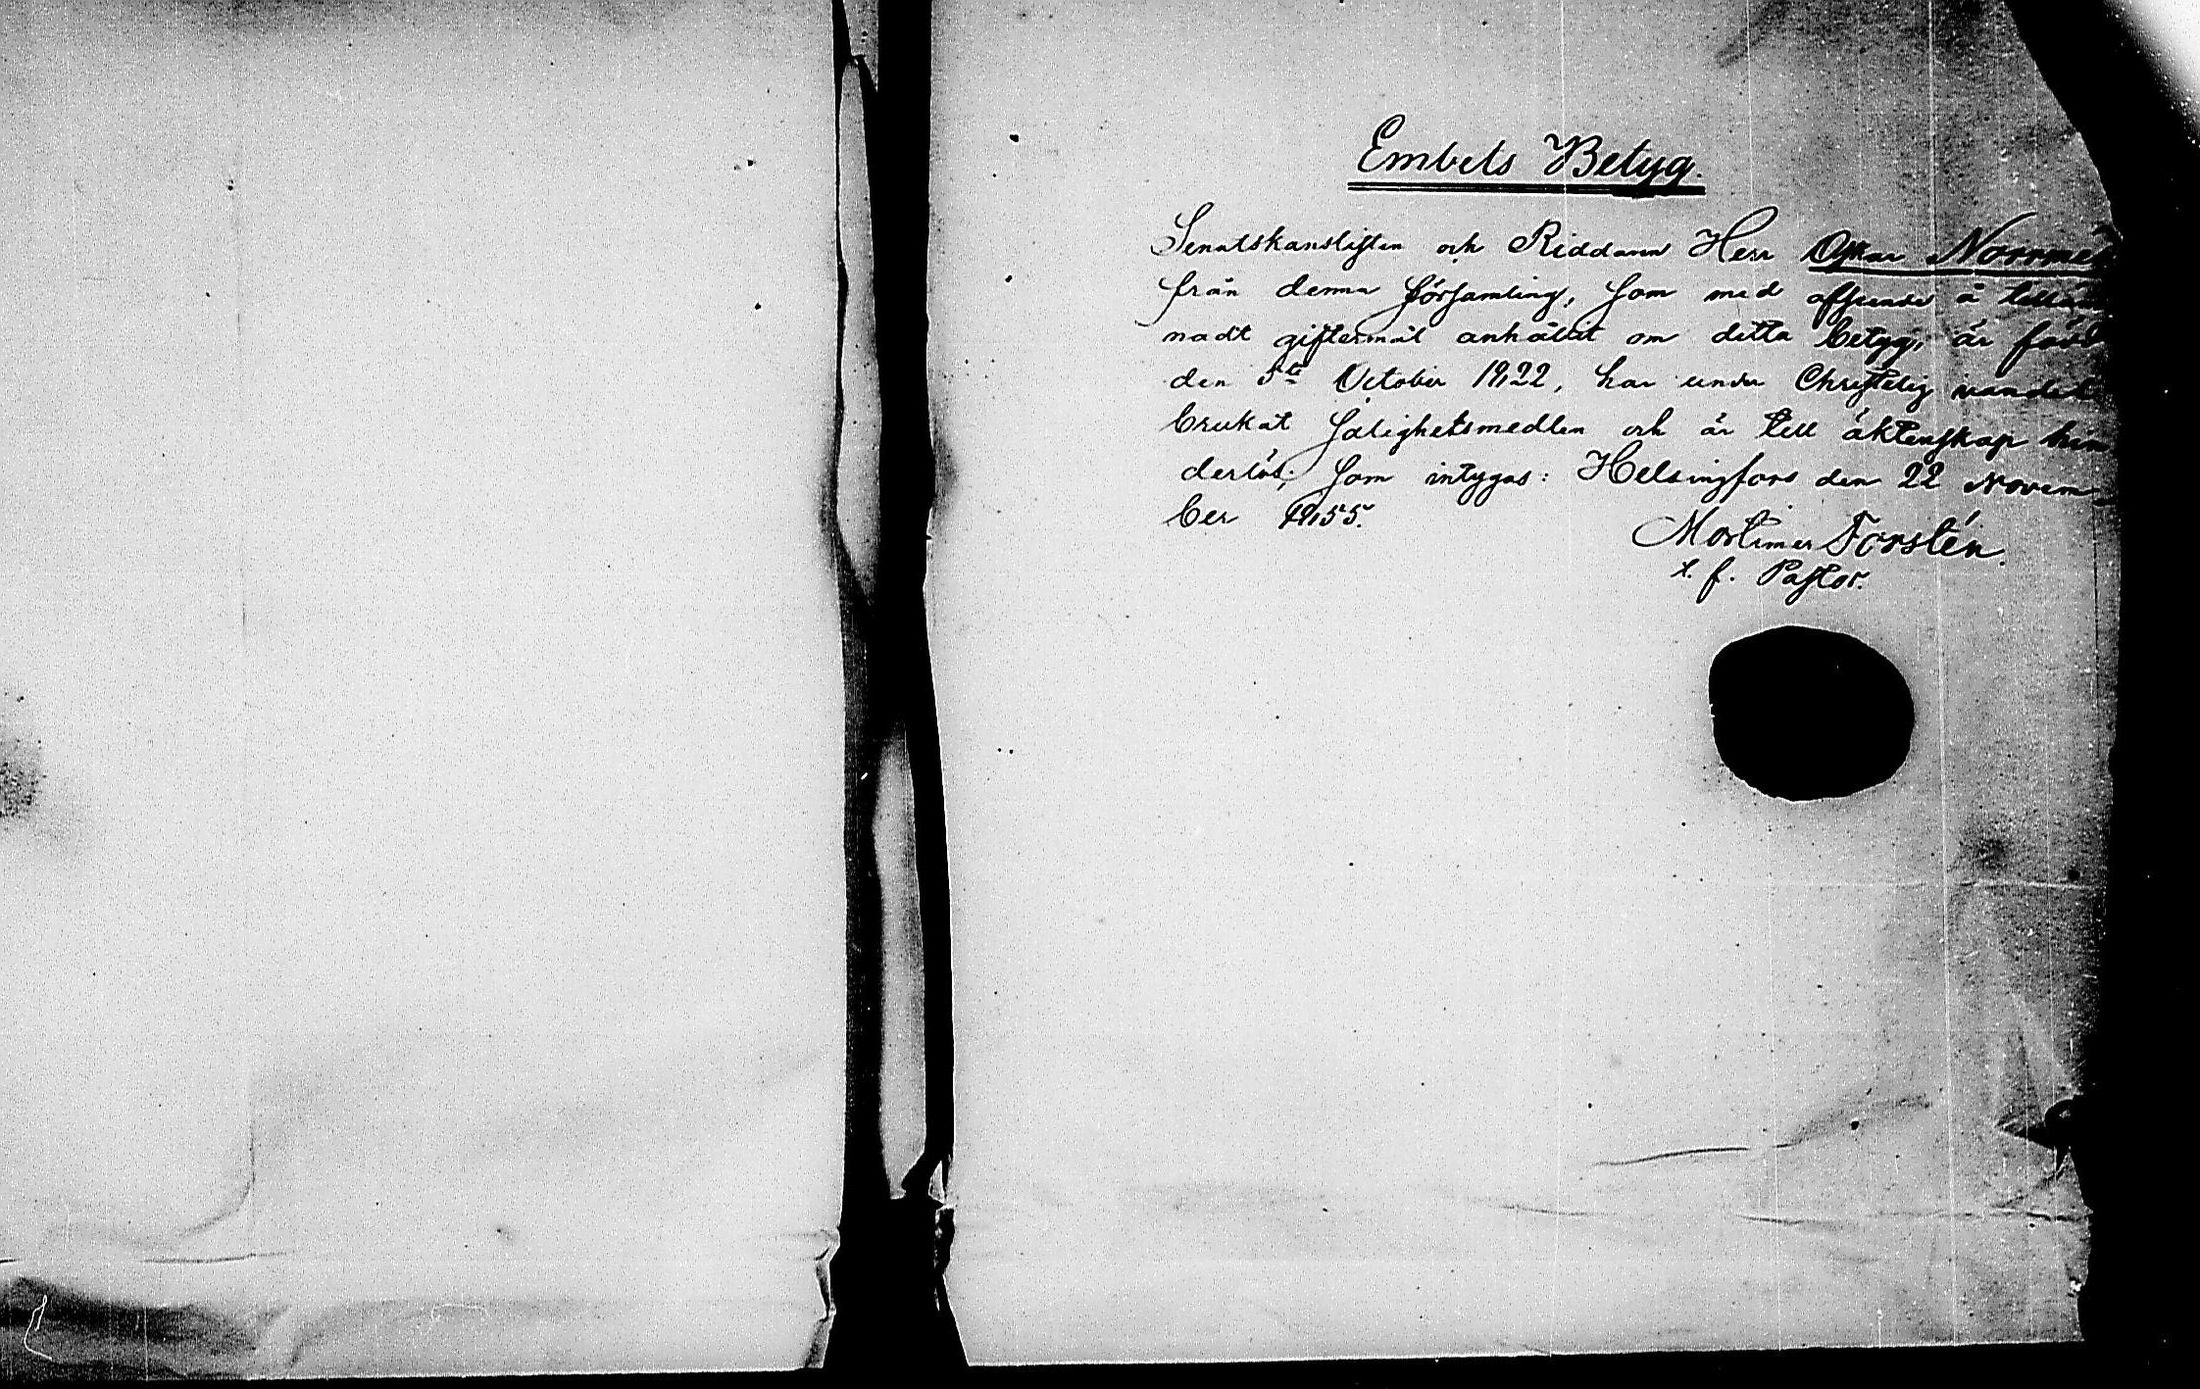 Embets Betyg.
Senatskanslisten och Riddaren Herr Oskar Norrmén
från denna församling, som med afseende å tilläm
nadt giftermål anhållit om detta betyg, är född
den 5te October 1822, har under Christelig vandel
brukat salighetsmedlen och är till äktenskap hin
derlös; som intygas: Helsingfors den 22 Novem
ber 1855.
Mortimer Forstén.
t. f. Pastor.